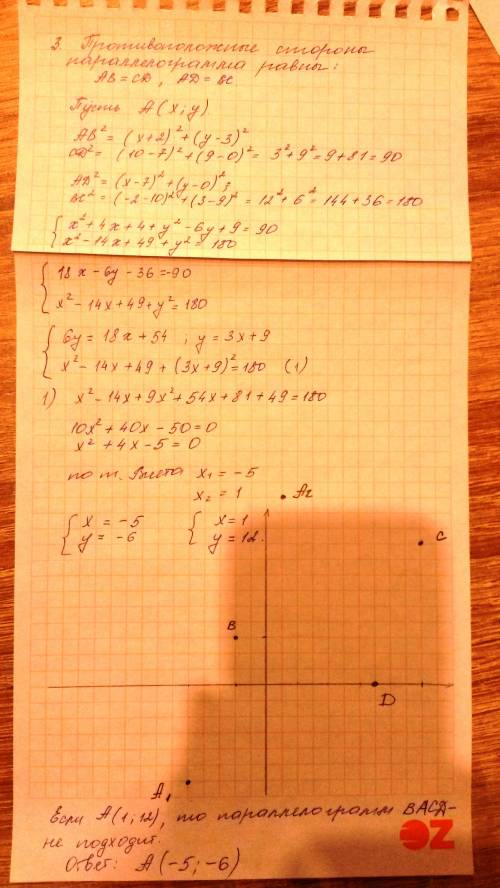 3. Противоположные стороны
параллелограмма равны:
AB = CD, AD = BC
Пусть A(x; y)
AB² = (x+2)² + (y-3)²
CD² = (10-7)² + (9-0)² = 3² + 9² = 9 + 81 = 90
AD² = (x-7)² + (y-0)²;
BC² = (-2-10)² + (3-9)² = 12² + 6² = 144 + 36 = 180
{ x² + 4x + 4 + y² - 6y + 9 = 90
x² - 14x + 49 + y² = 180
{ 18x - 6y - 36 = -90
x² - 14x + 49 + y² = 180
{ 6y = 18x + 54 ; y = 3x + 9
x² - 14x + 49 + (3x+9)² = 180 (1)
1) x² - 14x + 9x² + 54x + 81 + 49 = 180
10x² + 40x - 50 = 0
x² + 4x - 5 = 0
по т. Виета x₁ = -5
x₂ = 1
{ x = -5 { x = 1
y = -6 y = 12.
A₂
C
B
D
A₁
Если A(1; 12), то параллелограмм BACD -
не подходит.
Ответ: A(-5; -6)